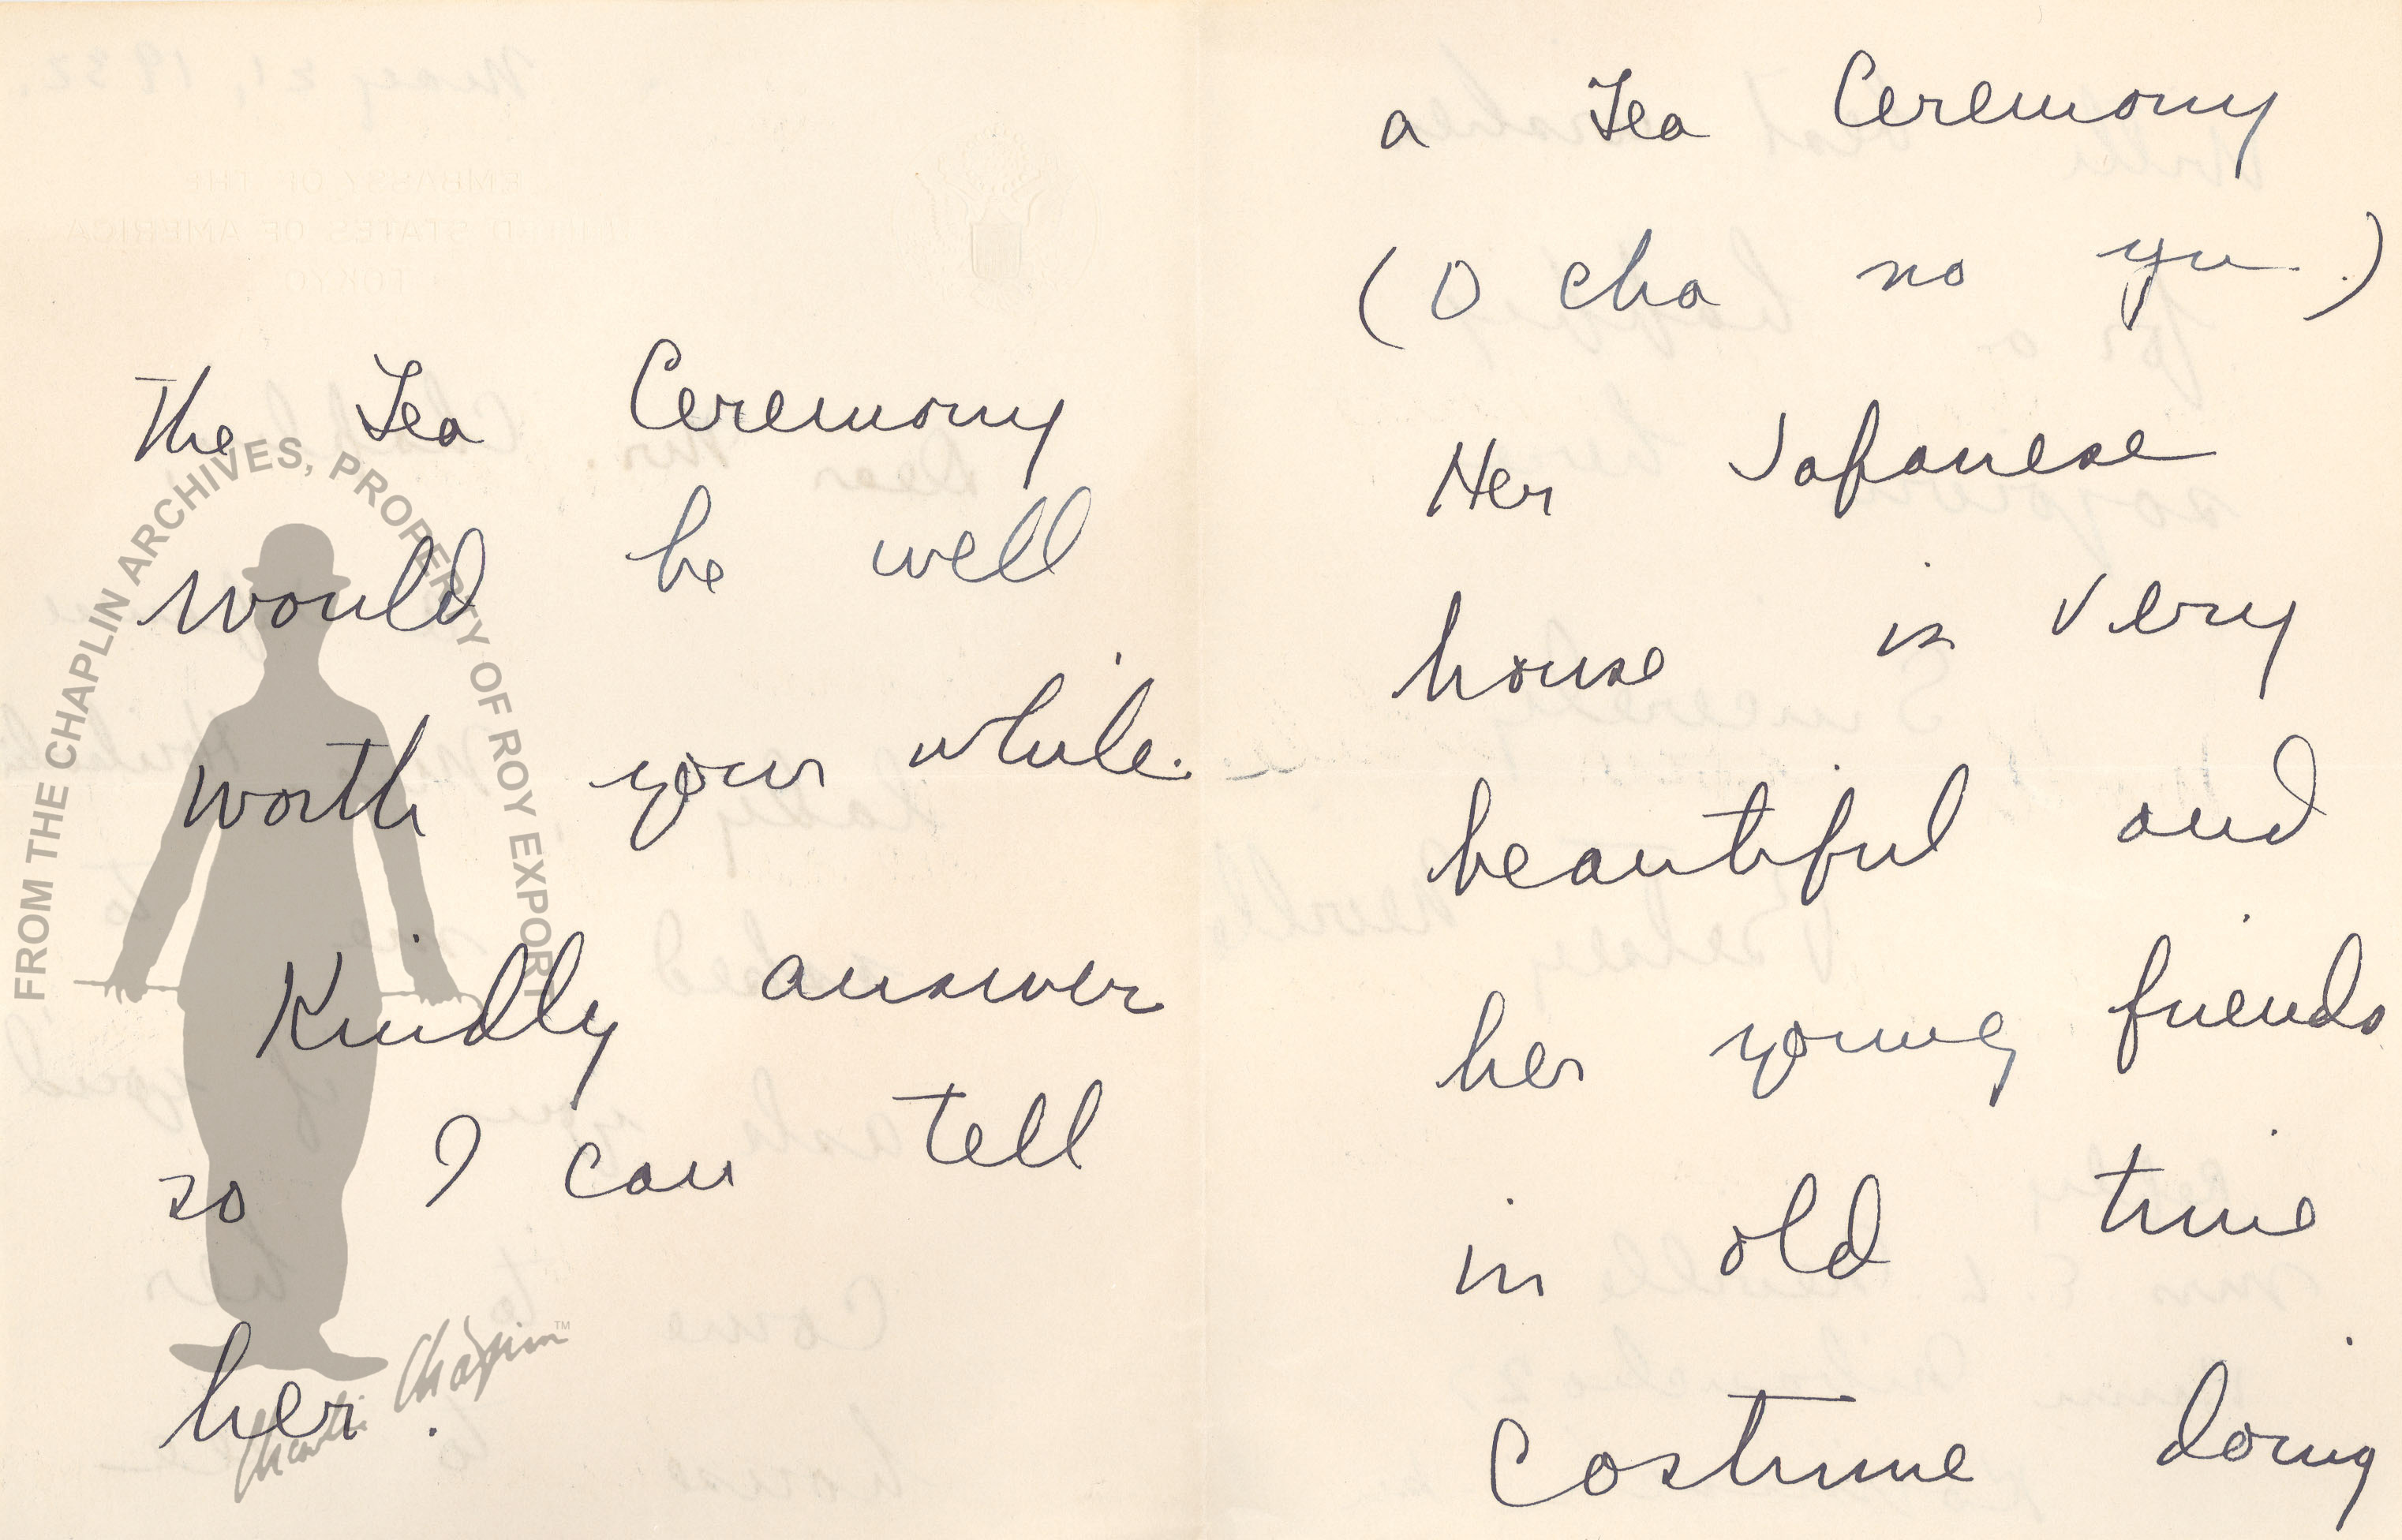 a Tea Ceremony
(O cha no yu.)
Her Japanese
house is very
beautiful and
her young friends
in old time
costume doing
The Tea Ceremony
would be well
worth your while.
Kindly answer
so I can tell
her.
FROM THE CHAPLIN ARCHIVES, PROPERTY OF ROY EXPORT
Charlie Chaplin™